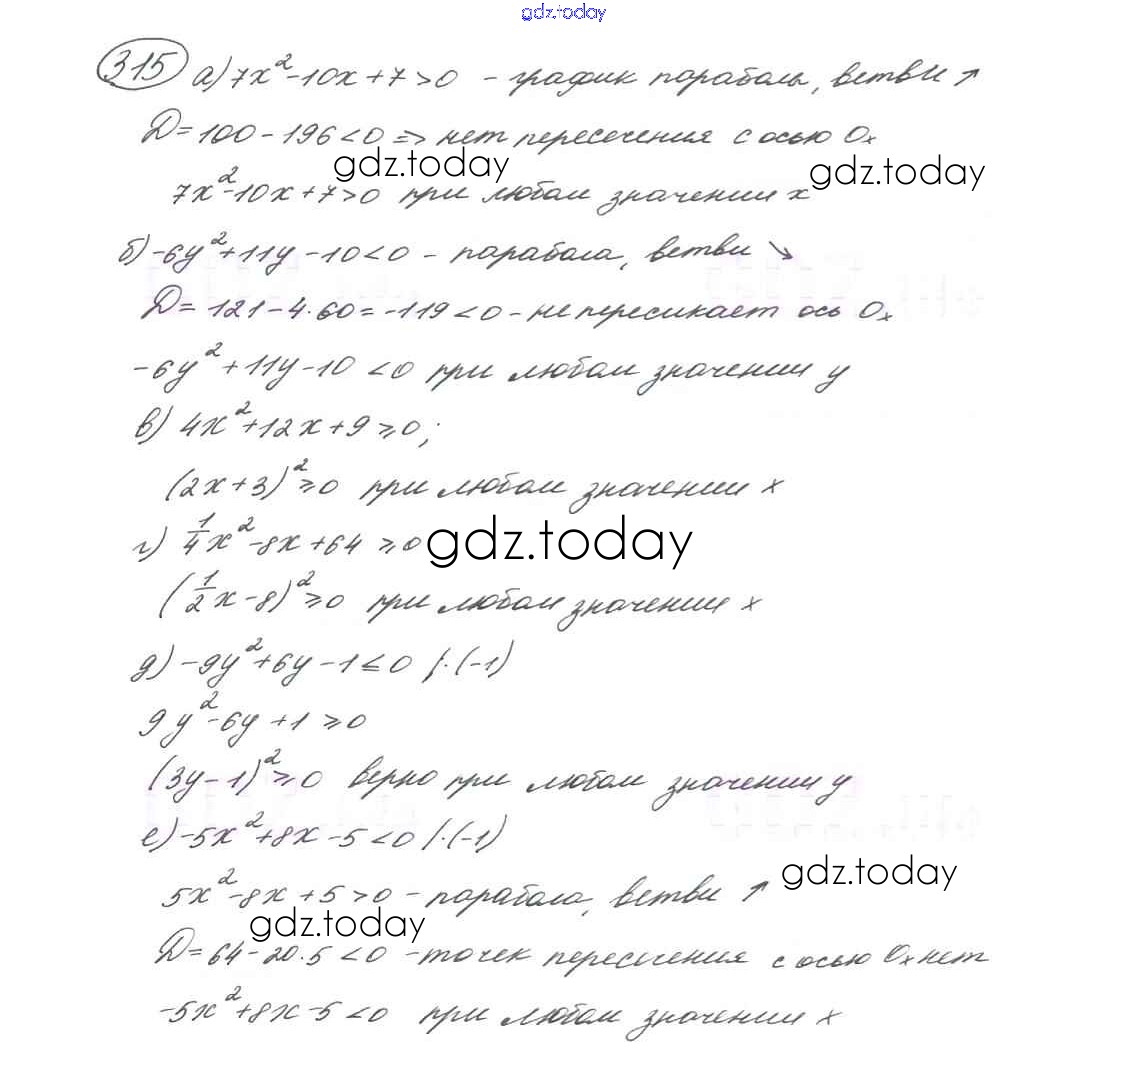 gdz.today
315 а) 7x²-10x+7>0 - график параболы, ветви ↗
D=100-196<0 => нет пересечения с осью Ox
gdz.today gdz.today
7x²-10x+7>0 при любом значении x
б) -6y²+11y-10<0 - парабола, ветви ↘
D=121-4·60=-119<0 - не пересикает ось Ox
-6y²+11y-10<0 при любом значении y
в) 4x²+12x+9≥0;
(2x+3)²≥0 при любом значении x
г) 1/4x²-8x+64≥0 gdz.today
(1/2x-8)²≥0 при любом значении x
д) -9y²+6y-1≤0 /·(-1)
9y²-6y+1≥0
(3y-1)²≥0 верно при любом значении y
е) -5x²+8x-5<0 /·(-1)
gdz.today
5x²-8x+5>0 - парабола, ветви ↗
gdz.today
D=64-20·5<0 - точек пересечения с осью Ox нет
-5x²+8x-5<0 при любом значении x